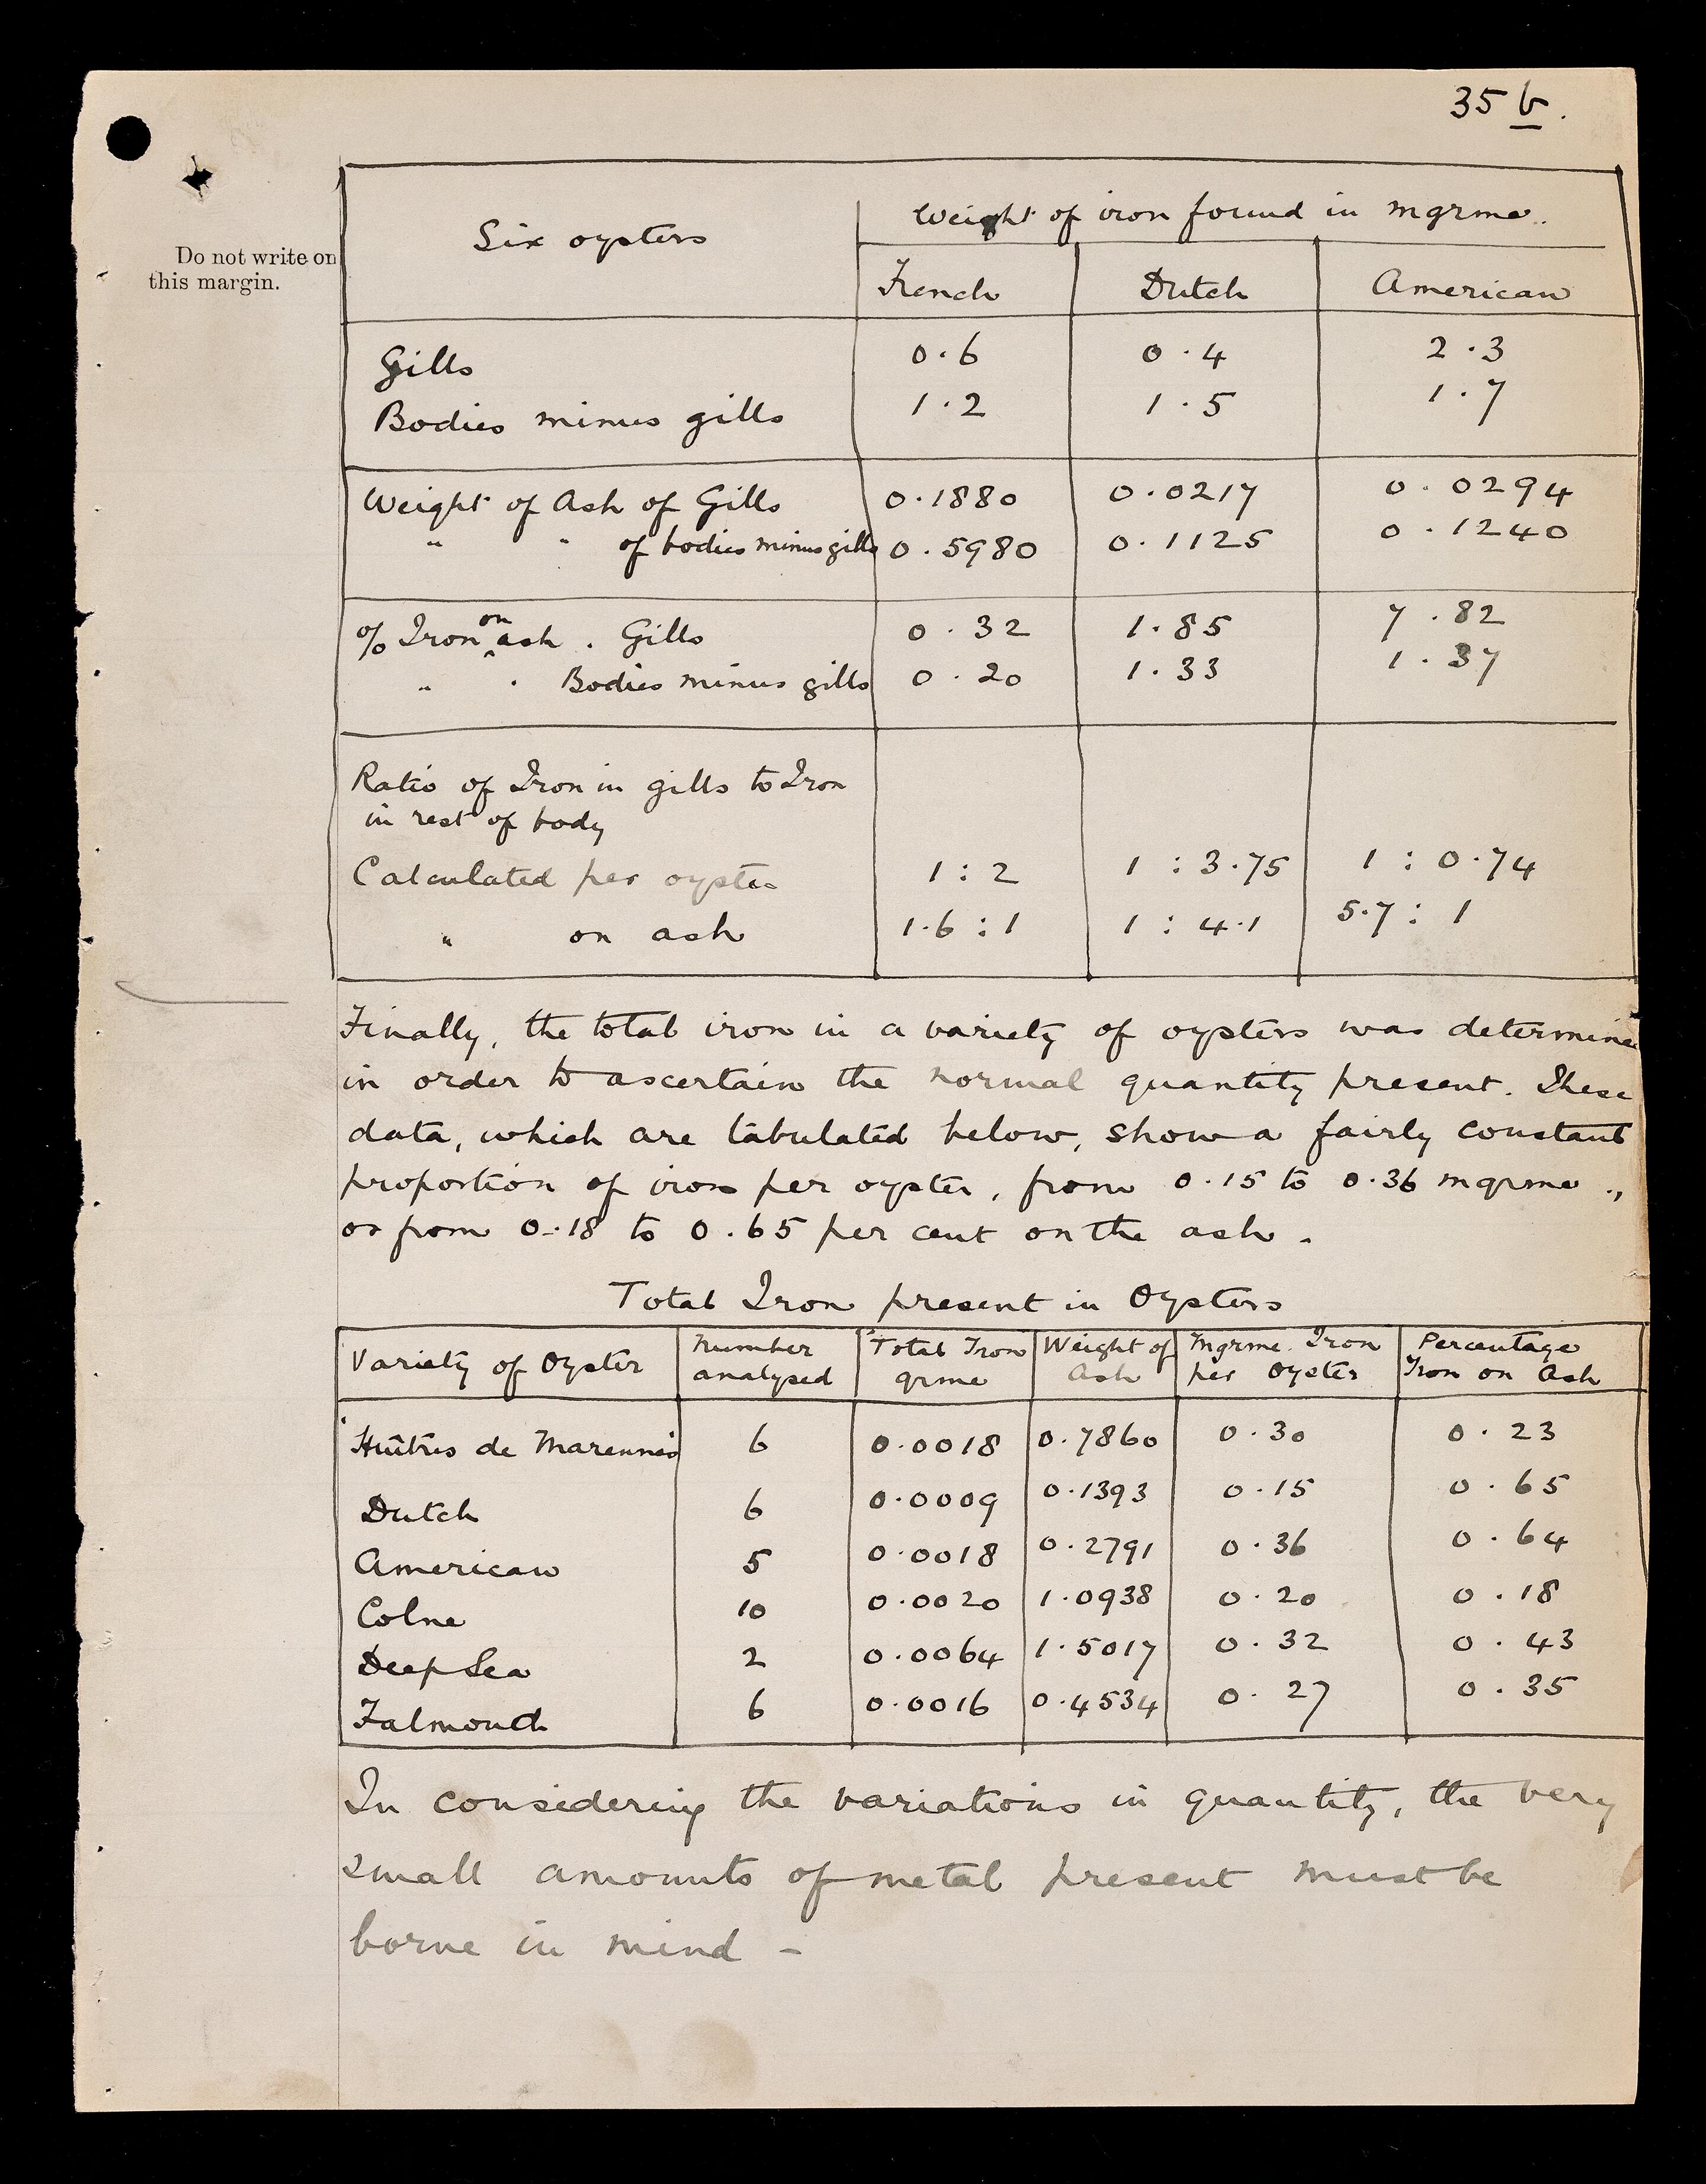 35 b.
Do not write on
this margin.
Six oysters
Weight of iron found in mgrme.
French Dutch American
Gills 0.6 0.4 2.3
Bodies minus gills 1.2 1.5 1.7
Weight of Ash of Gills 0.1880 0.0217 0.0294
" " of bodies minus gills 0.5980 0.1125 0.1240
% Iron on ash . Gills 0.32 1.85 7.82
" " Bodies minus gills 0.20 1.33 1.37
Ratio of Iron in gills to Iron
in rest of body
Calculated per oyster 1:2 1:3.75 1:0.74
" on ash 1.6:1 1:4.1 5.7:1
Finally, the total iron in a variety of oysters was determined
in order to ascertain the normal quantity present. These
data, which are tabulated below, show a fairly constant
proportion of iron per oyster, from 0.15 to 0.36 mgrme.,
or from 0.18 to 0.65 per cent on the ash.
Total Iron present in Oysters
Variety of Oyster Number analysed Total Iron grme Weight of Ash Mgrme. Iron per Oyster Percentage Iron on Ash
Huîtres de Marennes 6 0.0018 0.7860 0.30 0.23
Dutch 6 0.0009 0.1393 0.15 0.65
American 5 0.0018 0.2791 0.36 0.64
Colne 10 0.0020 1.0938 0.20 0.18
Deep Sea 2 0.0064 1.5017 0.32 0.43
Falmouth 6 0.0016 0.4534 0.27 0.35
In considering the variations in quantity, the very
small amounts of metal present must be
borne in mind -